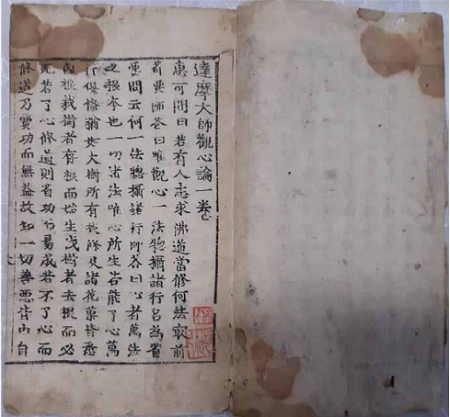 達摩大師觀心論一卷
惠可問曰若有人志求佛道當修何法㝡
省要師答曰唯觀心一法惣攝諸行名為省
要問云何一法惣攝諸行師答曰心者萬法
之根本也一切諸法唯心所生若能了心萬
行俱備猶如大樹所有枝條及諸花菓皆悉
因根栽樹者存根而始生伐樹者去根而必
死若了心修道則省功而易成若不了心而
修道乃費功而無益故知一切善惡皆由自